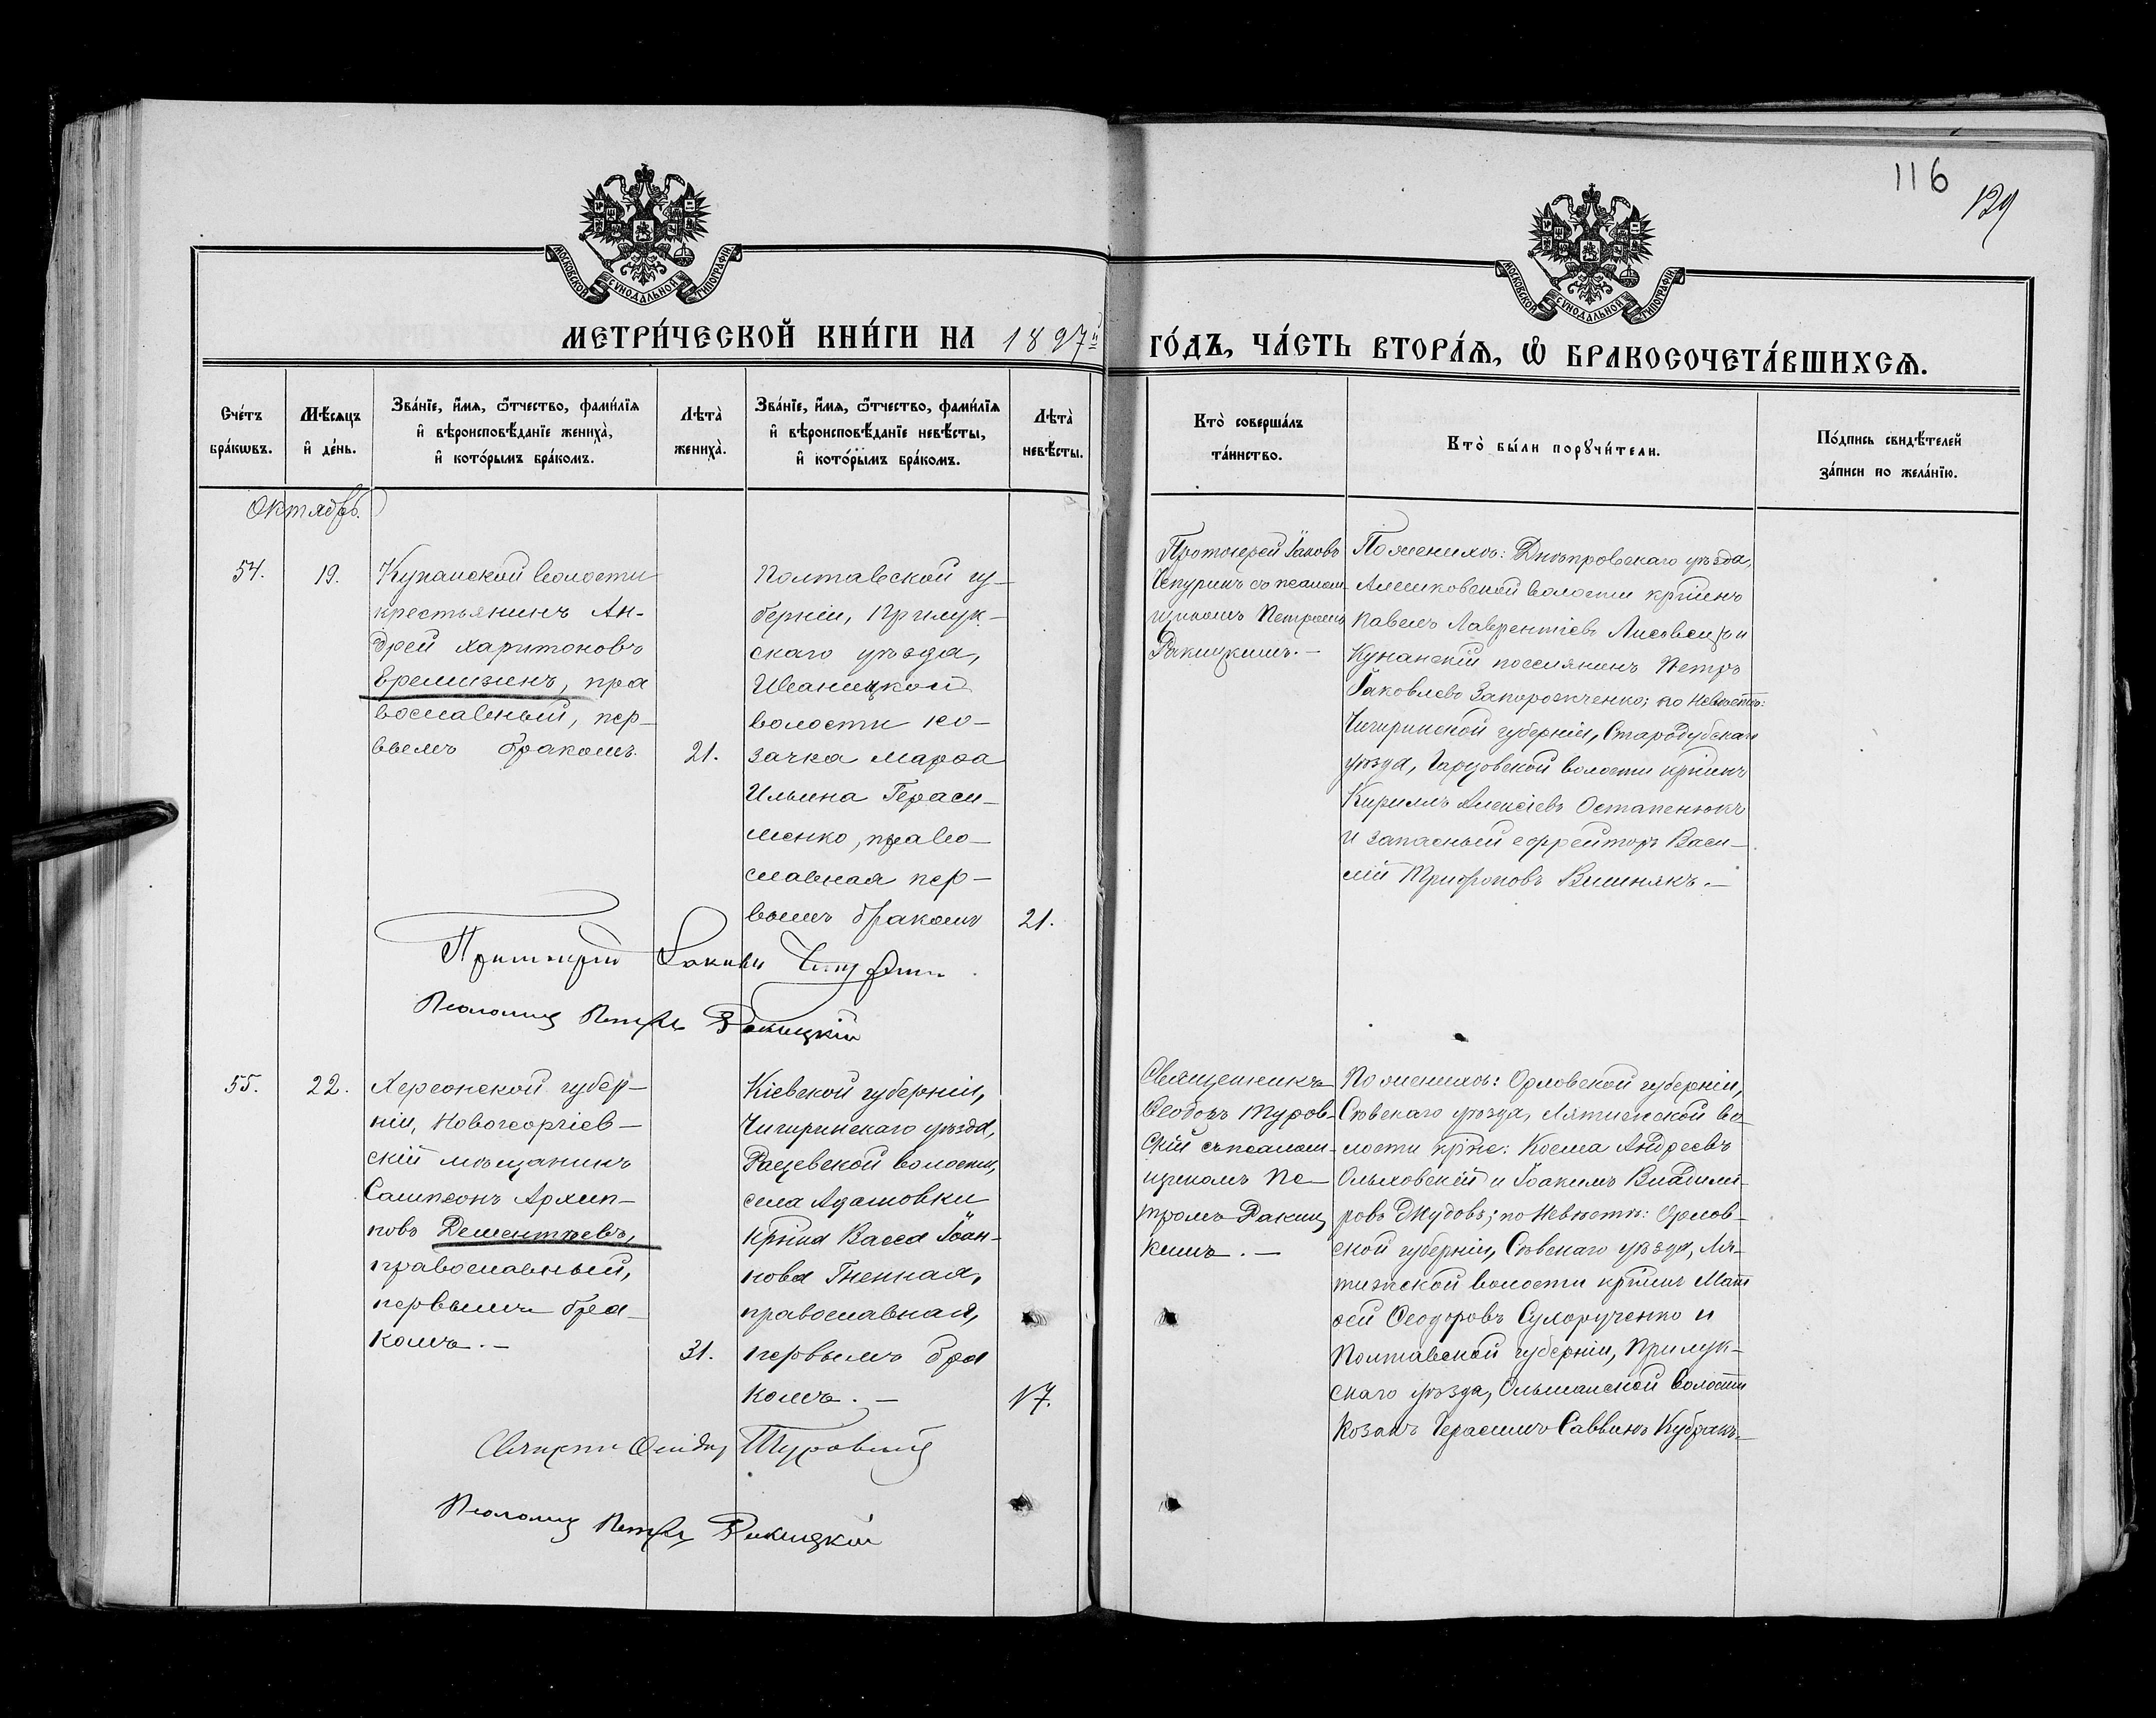 116
129
МОСКОВСКОЙ СѴНОДАЛЬНОЙ ТИПОГРАФІИ
МОСКОВСКОЙ СѴНОДАЛЬНОЙ ТИПОГРАФІИ
МЕТРИ́ЧЕСКОЙ КНИ́ГИ НА 1897й
ГО́ДЪ, ЧА́СТЬ ВТОРА́Ѧ, Ѽ БРАКОСОЧЕТА́ВШИХСѦ.
Сче́тъ
бра́кѡвъ.
Мѣ́сяцъ
и҆ де́нь.
Зва́нїе, и҆́мѧ, ѻ҆́тчество, фами́лїѧ
и҆ вѣроисповѣ́данїе жениха̀,
и҆ кото́рымъ бра́комъ.
Лѣта̀
жениха̀.
Зва́нїе, и҆́мѧ, ѻ҆́тчество, фами́лїѧ
и҆ вѣроисповѣ́данїе невѣ́сты,
и҆ кото́рымъ бра́комъ.
Лѣта̀
невѣ́сты.
Кто̀ соверша́лъ
та́инство.
Кто̀ бы́ли порꙋчи́тели.
По́дпись свидѣ́телей
за́писи по жела́нїю.
Октябрь.
54.
19.
Кунанской волости
крестьянинъ Ан-
дрей Харитоновъ
Времизенъ, пра
вославный, пер-
вымъ бракомъ.
21.
Полтавской гу-
берніи, Прилук-
скаго уѣзда,
Иваницкой
волости ко-
зачка Марѳа
Ильина Гераси-
менко, право-
славная пер-
вымъ бракомъ
21.
Протоіерей Іаковъ
Чепуринъ со псалом-
щикомъ Петромъ
Ракицкимъ.-
По женихѣ: Днѣпровскаго уѣзда,
Алешковской волости кр҃нинъ
Павелъ Лаврентіевъ и
Кунанскій поселянинъ Петръ
Іаковлевъ Запорожченко; по невѣстѣ:
губерніи, Стародубскаго
уѣзда, волости кр҃нинъ
Кириллъ Алексіевъ Остапенюкъ
и запасный ефрейторъ Васи-
лій Трифоновъ Вишнякъ.-
Протоіерей Іаковъ Чепуринъ.
Псаломщ Петръ Ракицкій
55.
22.
Херсонской губер-
ніи, Новогеоргіев-
скій мѣщанинъ
Сампсонъ Архип-
повъ Дементьевъ,
православный,
первымъ бра-
комъ.-
31.
Кіевской губерніи,
Чигиринскаго уѣзда,
Рацевской волости,
села Адамовки
кр҃нка Васса Іоан-
нова Гненная,
православная,
первымъ бра
комъ.-
17.
Священникъ
Ѳеодоръ Туров-
скій съ псалом-
щикомъ Пе-
тромъ Ракиц
кимъ.-
По женихѣ: Орловской губерніи,
Сѣвскаго уѣзда, во-
лости кр҃не: Косма Андреевъ
Ольховскій и Іоакимъ Владимі-
ровъ; по невѣстѣ: Орлов-
ской губерніи, Сѣвскаго уѣзда,
волости кр҃нинъ Мат
ѳей Ѳеодоровъ Сухорученко и
Полтавской губерніи, Прилук-
скаго уѣзда, Ольшанской волости
козакъ Герасимъ Саввинъ Кубракъ.-
Священ Ѳеодоръ Туровскій
Псаломщ Петръ Ракицкій